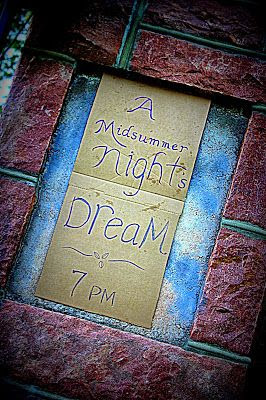 A
Midsummer
Night's
DreaM
7 PM